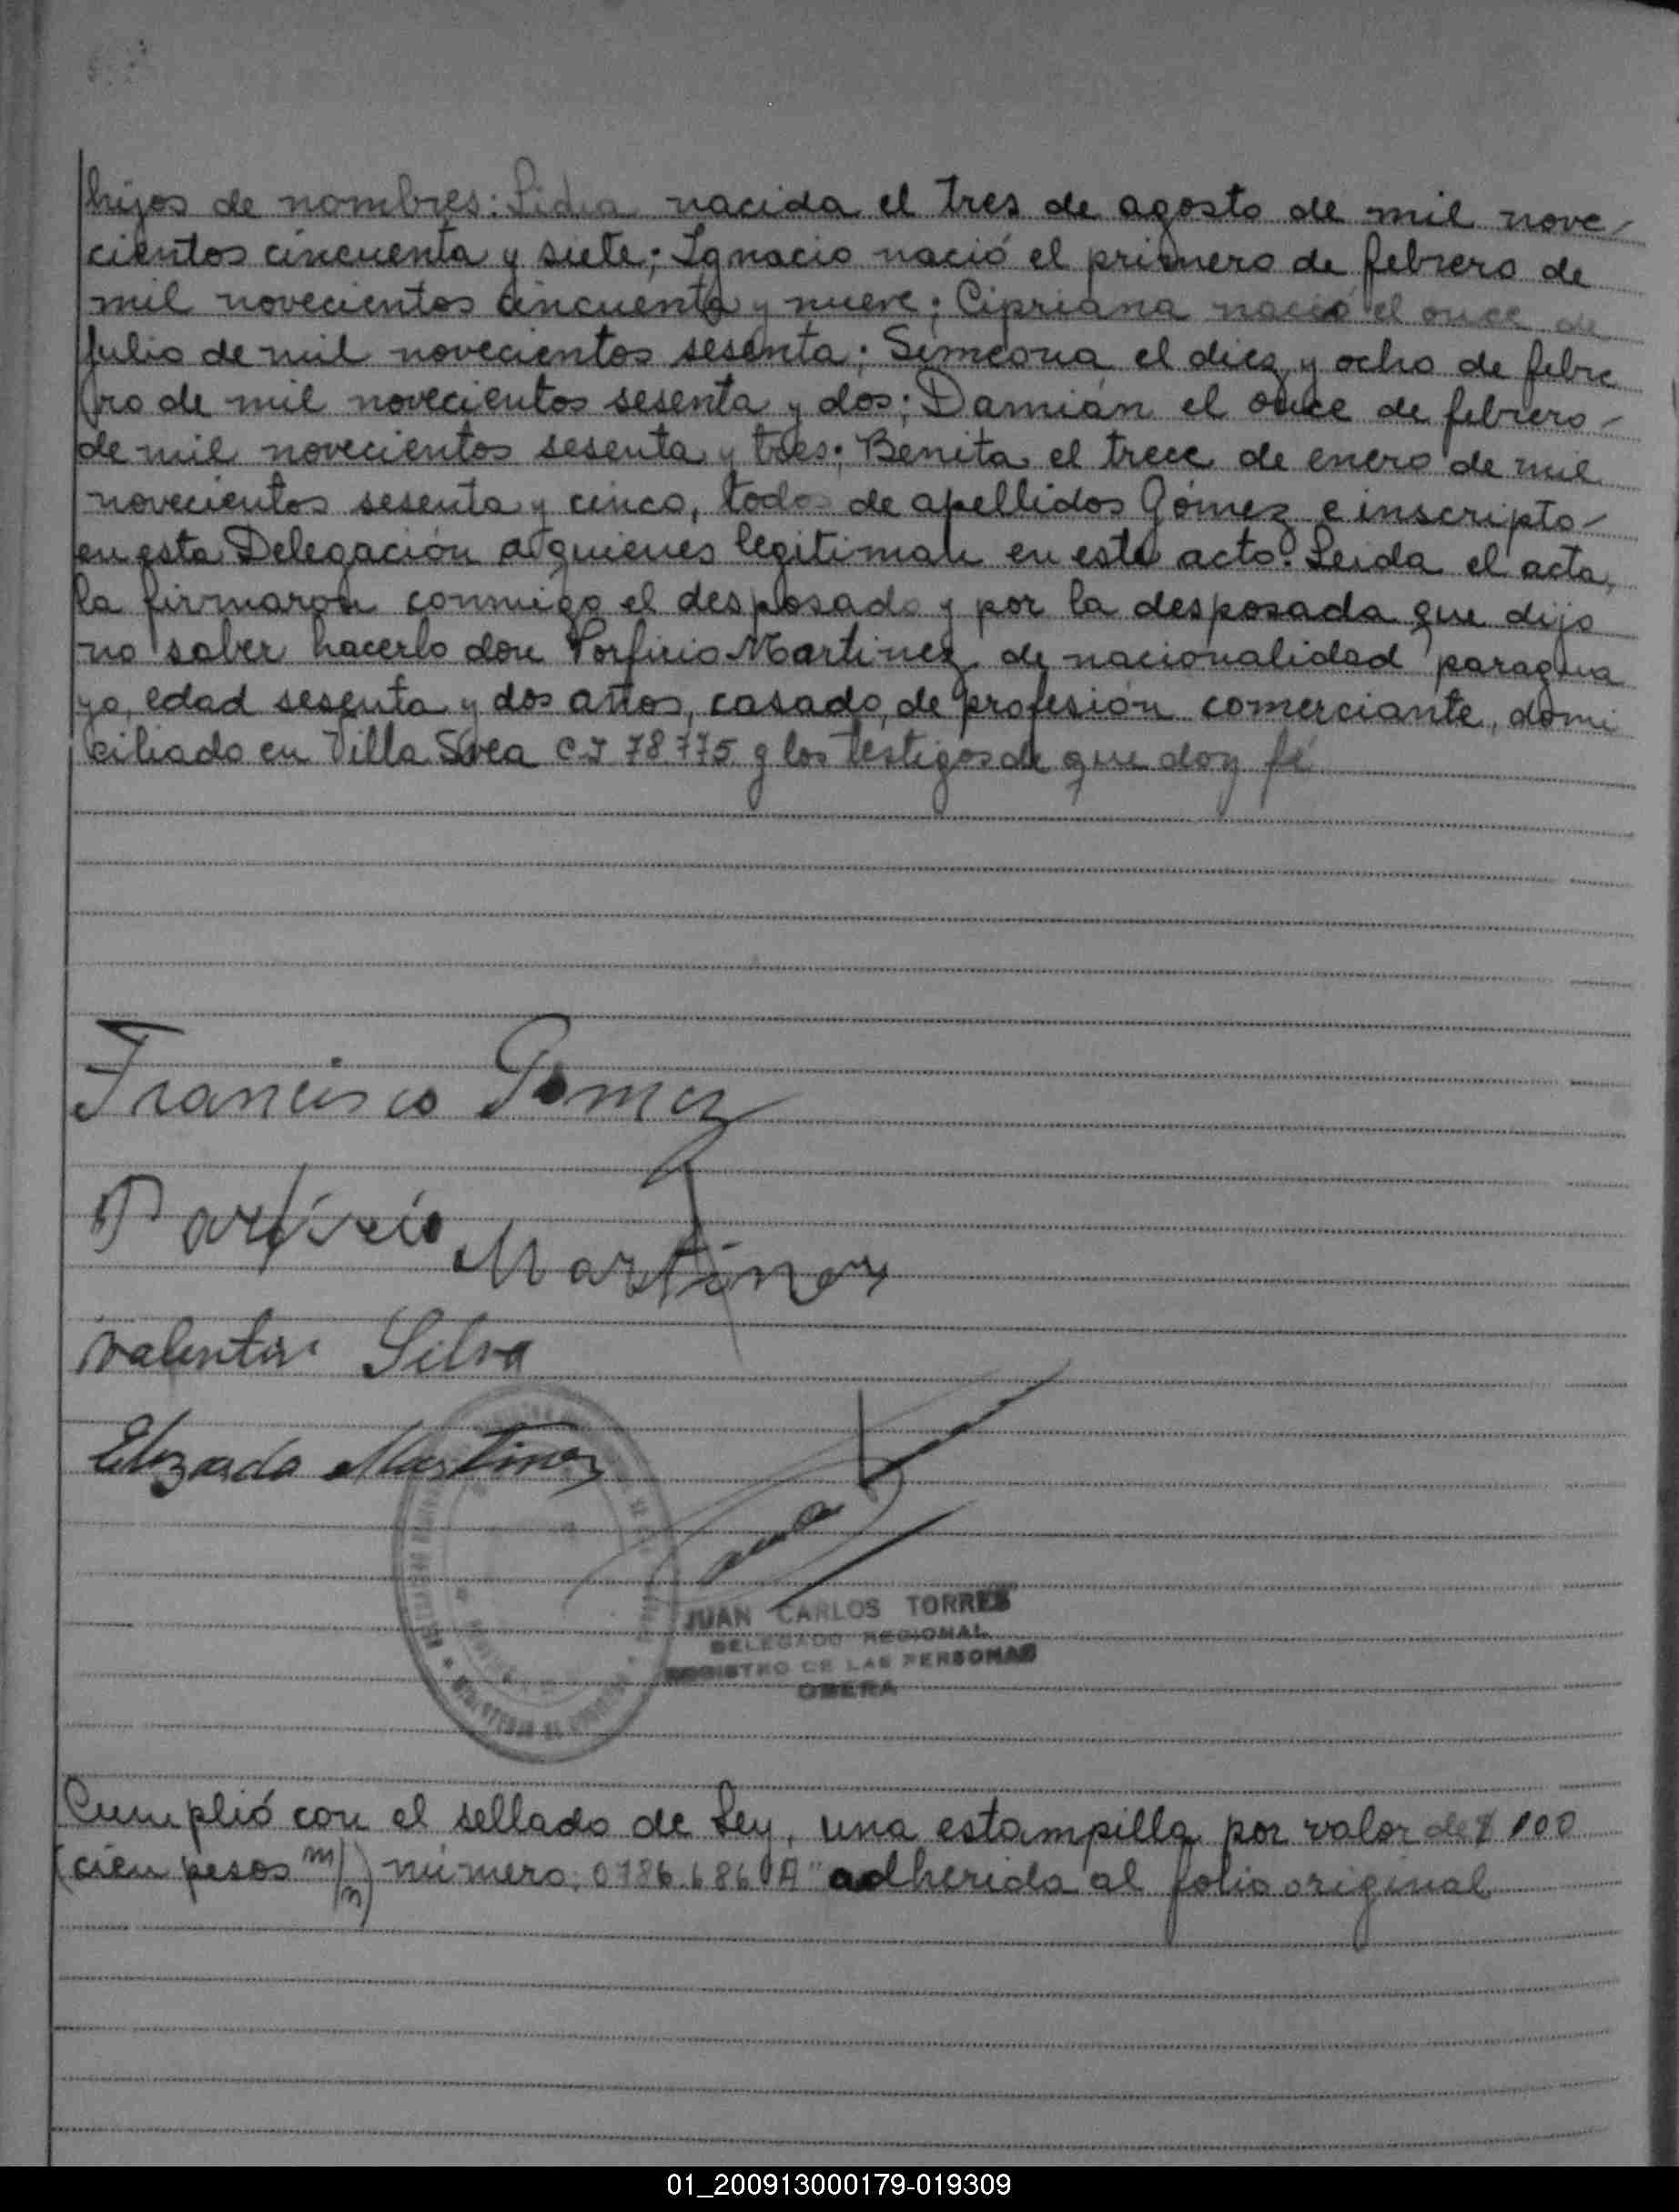 hijos de nombres: Lidia nacida el tres de agosto de mil nove-
cientos cincuenta y siete; Ignacio nació el primero de febrero de
mil novecientos cincuenta y nueve; Cipriana nació el once de
julio de mil novecientos sesenta; Simeona el diez y ocho de febre
ro de mil novecientos sesenta y dos; Damián el once de febrero-
de mil novecientos sesenta y tres; Benita el trece de enero de mil
novecientos sesenta y cinco, todos de apellidos Gómez e inscripto-
en esta Delegación a quienes legitiman en este acto. Leida el acta,
la firmaron conmigo el desposado y por la desposada que dijo
no saber hacerlo don Porfirio Martinez de nacionalidad paragua
ya, edad sesenta y dos años, casado, de profesión comerciante, domi
ciliado en Villa Svea C I 78.775 y los testigos de que doy fé
Francisco Gomez
Porfirio Martinez
Valentin Silva
Martinez
JUAN CARLOS TORRES
DELEGADO REGIONAL
REGISTRO DE LAS PERSONAS
OBERA
Cumplió con el sellado de Ley, una estampilla por valor de $ 100
(cien pesos m/n) número: 0786.686 "A" adherida al folio original
01_200913000179-019309